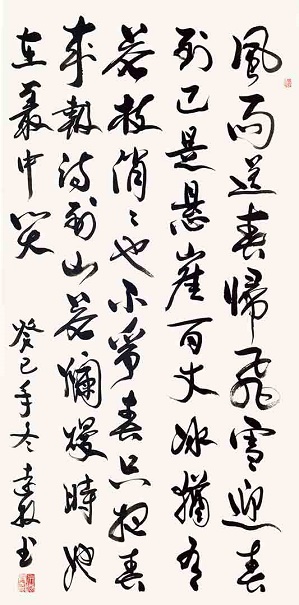 風雨送春歸飛雪迎春
到已是懸崖百丈冰猶有
花枝俏々也不爭春只把春
來報待到山花爛熳時她
在叢中笑
癸巳年冬
书